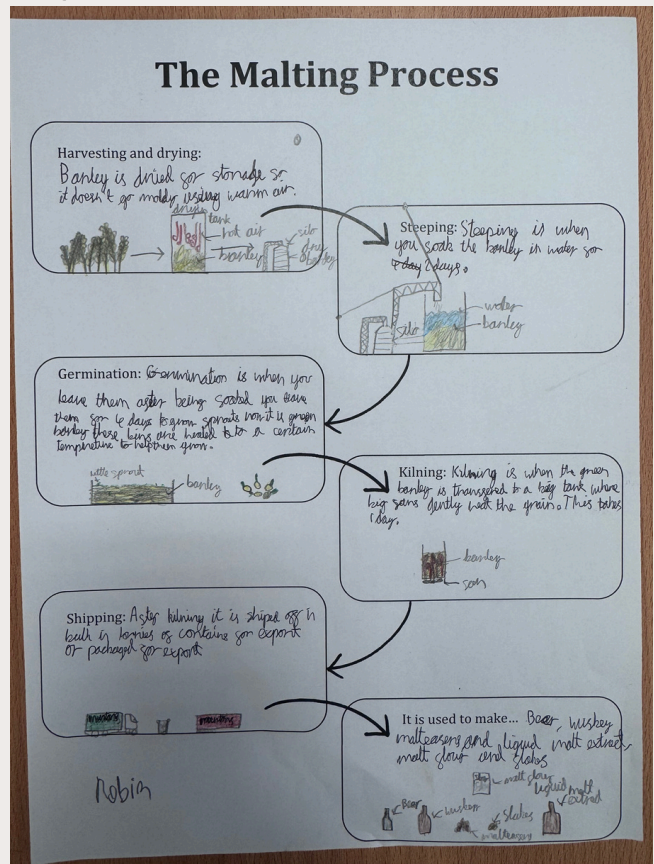 The Malting Process
Harvesting and drying:
Barley is dried for storage so
it doesn't go moldy using warm air.
drying
tank
hot air
barley
silo
dry
barley
Steeping: Steeping is when
you soak the barley in water for
2 days.
water
barley
silo
Germination: Germination is when you
leave them after being soaked you leave
them for 4 days to grow sprouts now it is green
barley these bins are heated to a certain
temperature to help them grow.
little sprout
barley
Kilning: Kilning is when the green
barley is transfered to a big tank where
big fans gently heat the grain. This takes
1 day.
barley
fan
Shipping: After kilning it is shiped off in
bulk in lorries or containe for export
or packaged for export
It is used to make... Beer, wiskey
malteasers and liquid malt extract
malt flour and flakes
malt flour
liquid malt
extract
Beer
flakes
malteasers
Robin